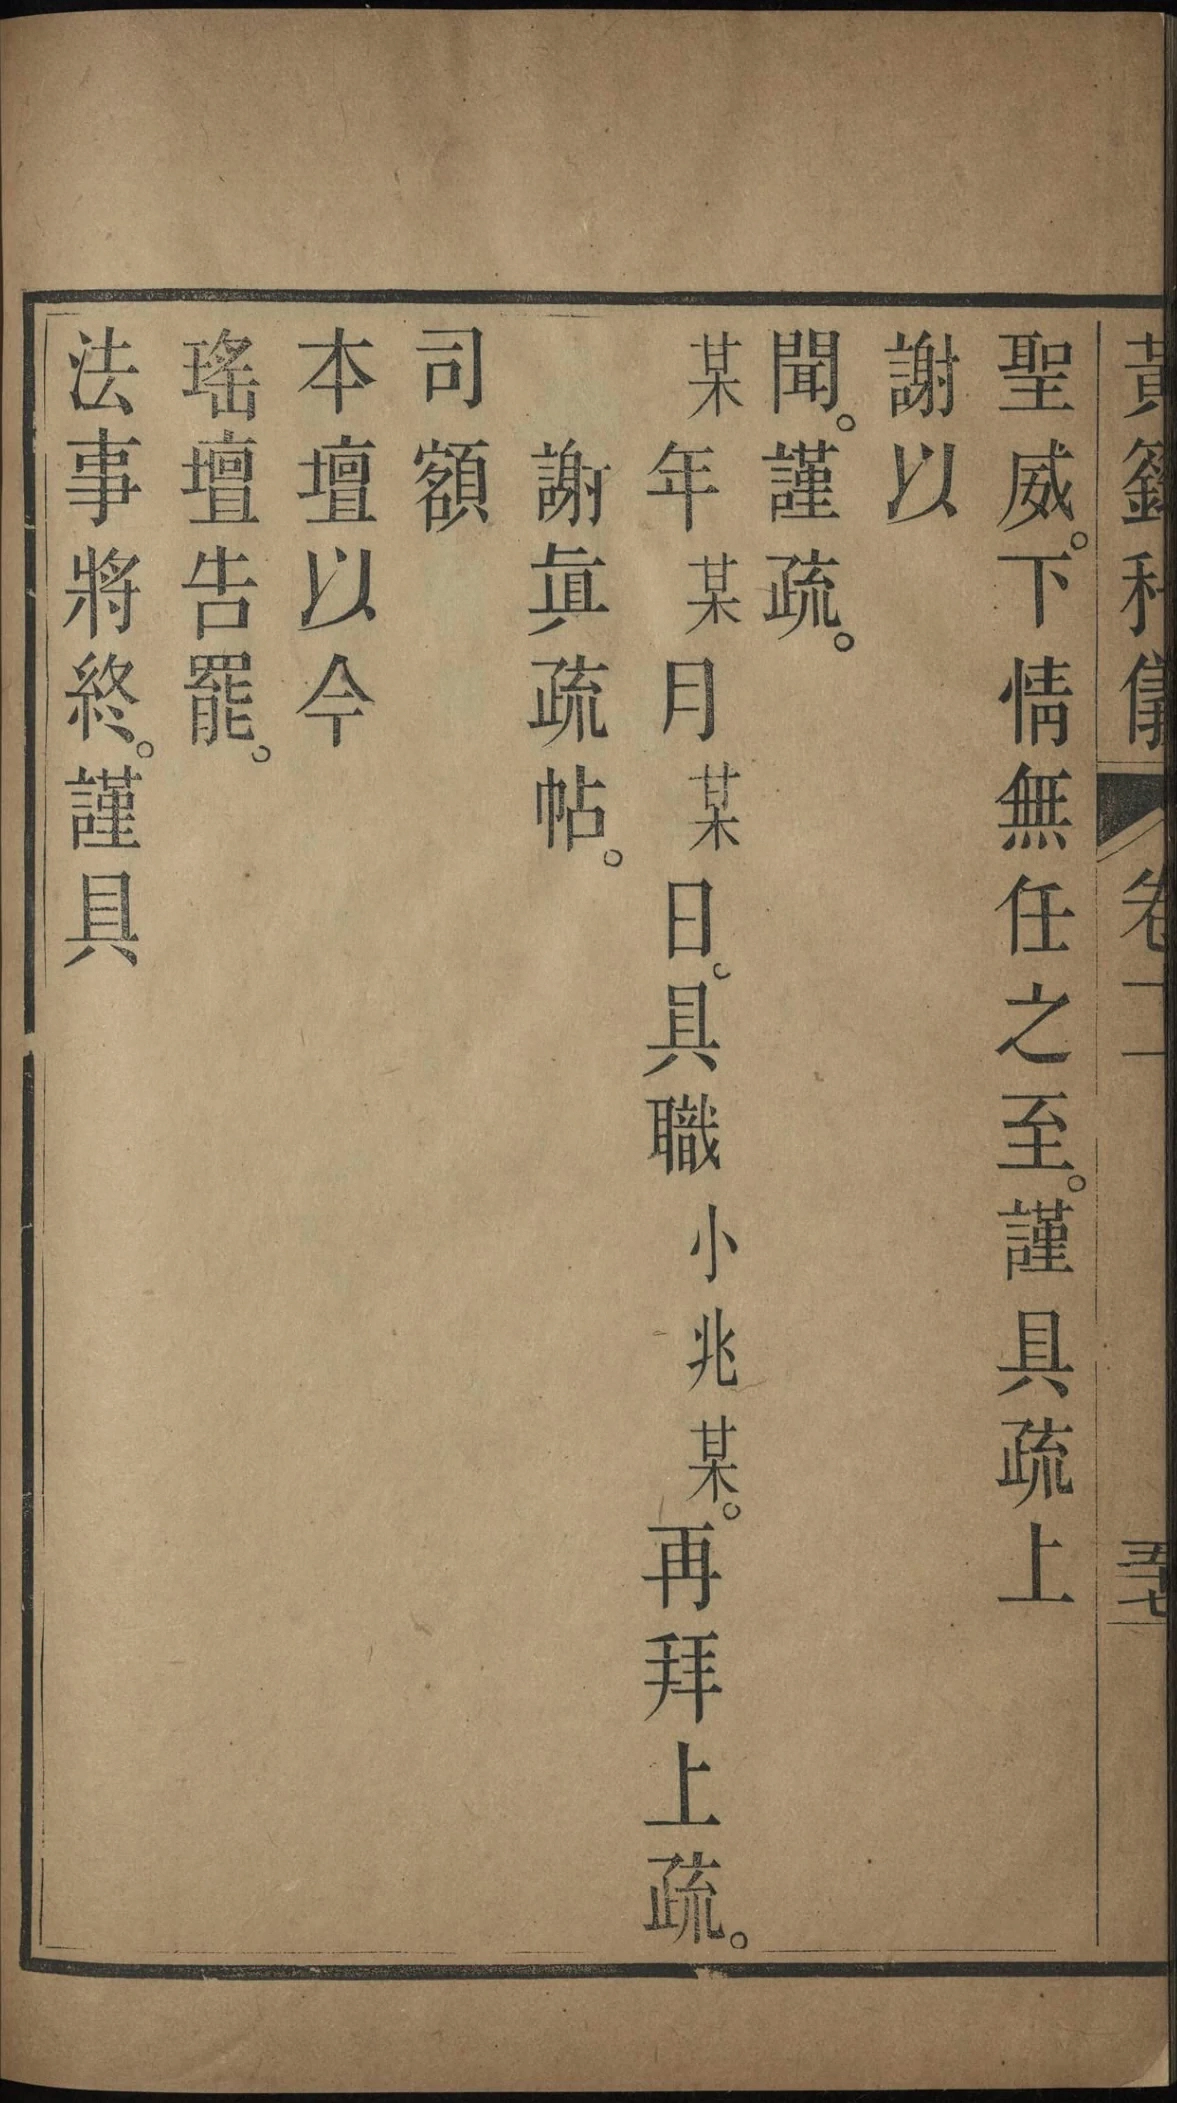 黃籙科儀 卷十二 五十七
聖威。下情無任之至。謹具疏上
謝以
聞。謹疏。
某年某月某日。具職小兆某。再拜上疏。
謝眞疏帖。
司額
本壇以今
瑤壇告罷。
法事將終。謹具